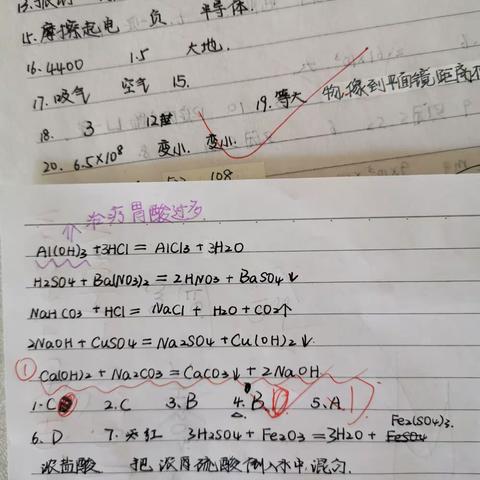 15. 摩擦起电 负 半导体.
16. 4400 1.5 大地.
17. 吸气 空气 15.
19. 等大 物.像到平面镜距离
18. 3 12
20. 6.5×10⁸ 变小. 变小.
108
治疗胃酸过多
Al(OH)₃ +3HCl = AlCl₃ + 3H₂O
H₂SO₄ + Ba(NO₃)₂ = 2HNO₃ + BaSO₄↓
NaHCO₃ + HCl = NaCl + H₂O + CO₂↑
2NaOH + CuSO₄ = Na₂SO₄ + Cu(OH)₂↓
① Ca(OH)₂ + Na₂CO₃ = CaCO₃↓ + 2NaOH
1. C 2. C 3. B 4. B 5. A
Fe₂(SO₄)₃.
6. D 7. 红 3H₂SO₄ + Fe₂O₃ = 3H₂O + FeSO₄
浓盐酸 把浓硫酸倒入水中,混匀.